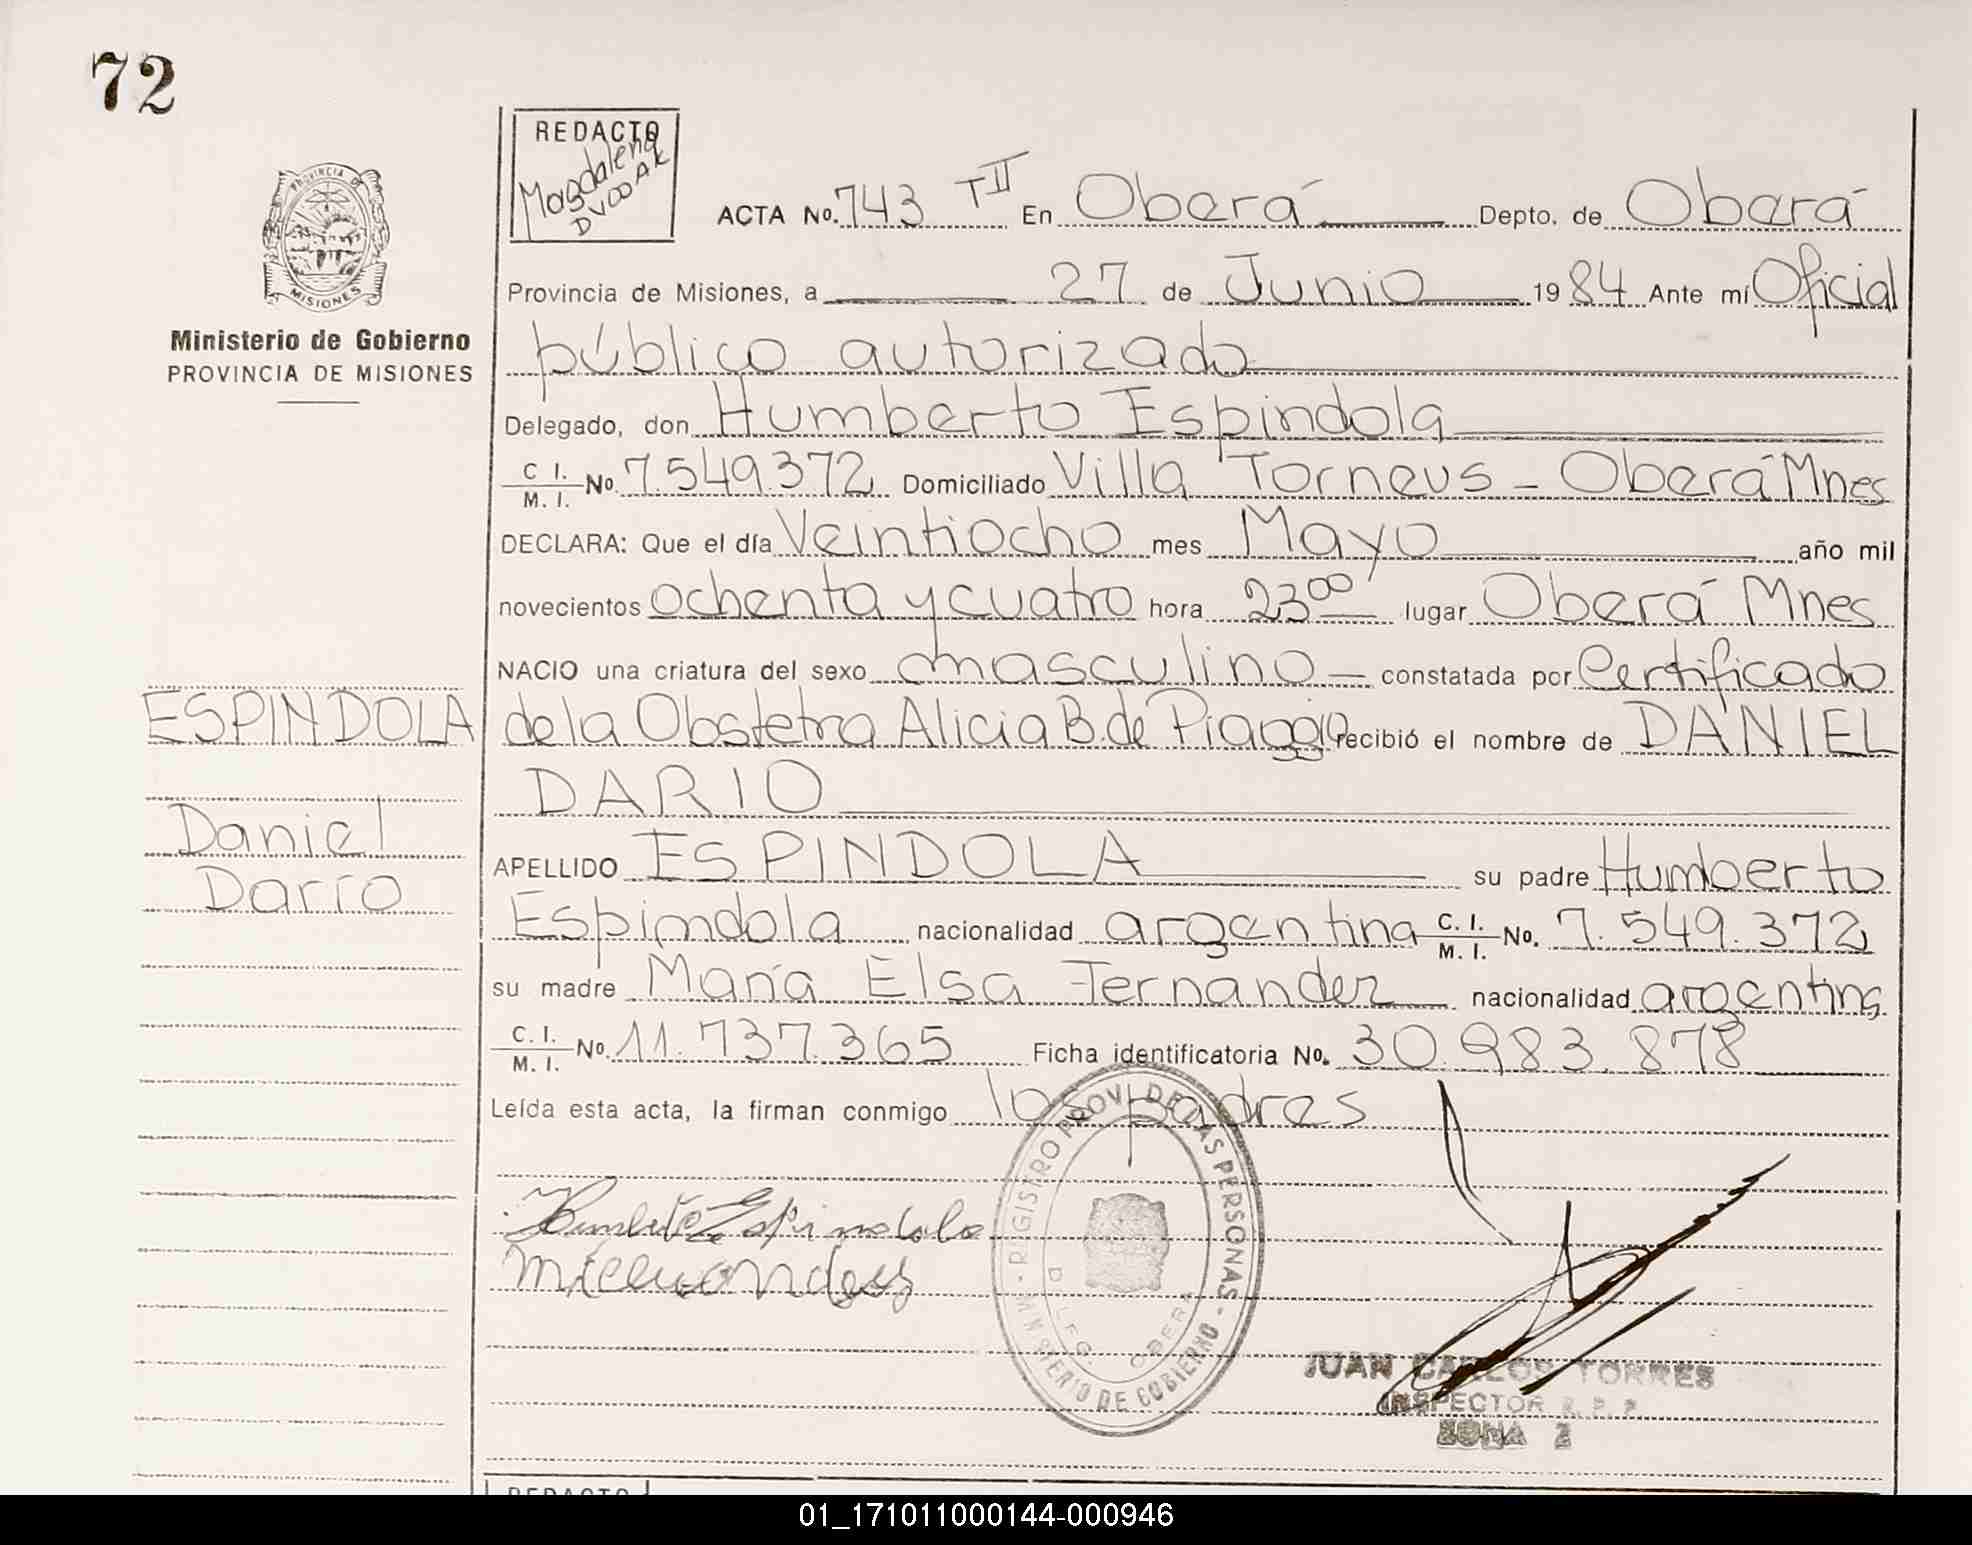 72
REDACTO
Magdalena
DVOOAK
ACTA No. 743 T II En Oberá Depto. de Oberá
PROVINCIA DE
MISIONES
Provincia de Misiones, a 27 de Junio 1984 Ante mí Oficial
Ministerio de Gobierno
PROVINCIA DE MISIONES
público autorizado
Delegado, don Humberto Espindola
C. I. / M. I. No. 7.549.372 Domiciliado Villa Torneus - Oberá Mnes
DECLARA: Que el día Veintiocho mes Mayo año mil
novecientos ochenta y cuatro hora 23 00 lugar Oberá Mnes
NACIO una criatura del sexo masculino constatada por Certificado
ESPINDOLA
de la Obstetra Alicia B. de Piaggio recibió el nombre de DANIEL
DARIO
Daniel
Darío
APELLIDO ESPINDOLA su padre Humberto
Espindola nacionalidad argentina C. I. / M. I. No. 7.549.372
su madre María Elsa Fernandez nacionalidad argentina
C. I. / M. I. No. 11.737.365 Ficha identificatoria No. 30.983.878
Leída esta acta, la firman conmigo los padres
Humberto Espindola
REGISTRO PROV. DE LAS PERSONAS - MINISTERIO DE GOBIERNO
DELEG. OBERA
JUAN CARLOS TORRES
INSPECTOR R. P. P.
ZONA 2
REDACTO
01_171011000144-000946